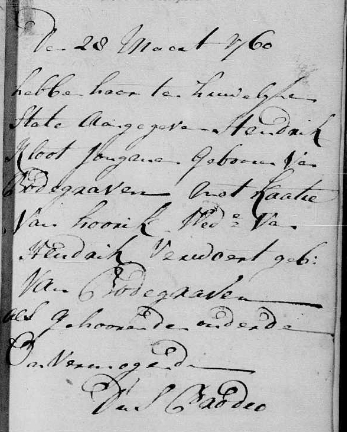 Den 28 Maart 1760
hebbe haar ten huwelyken
State Aangegeven Hendrik
Kloot Jongman Geboren Van
Bodegraven Met Kaatie
Van hoorik Wede Van
Hendrik Vervoort geb:
Van Bodegraven
als gehoorende onder de
Onvermogende